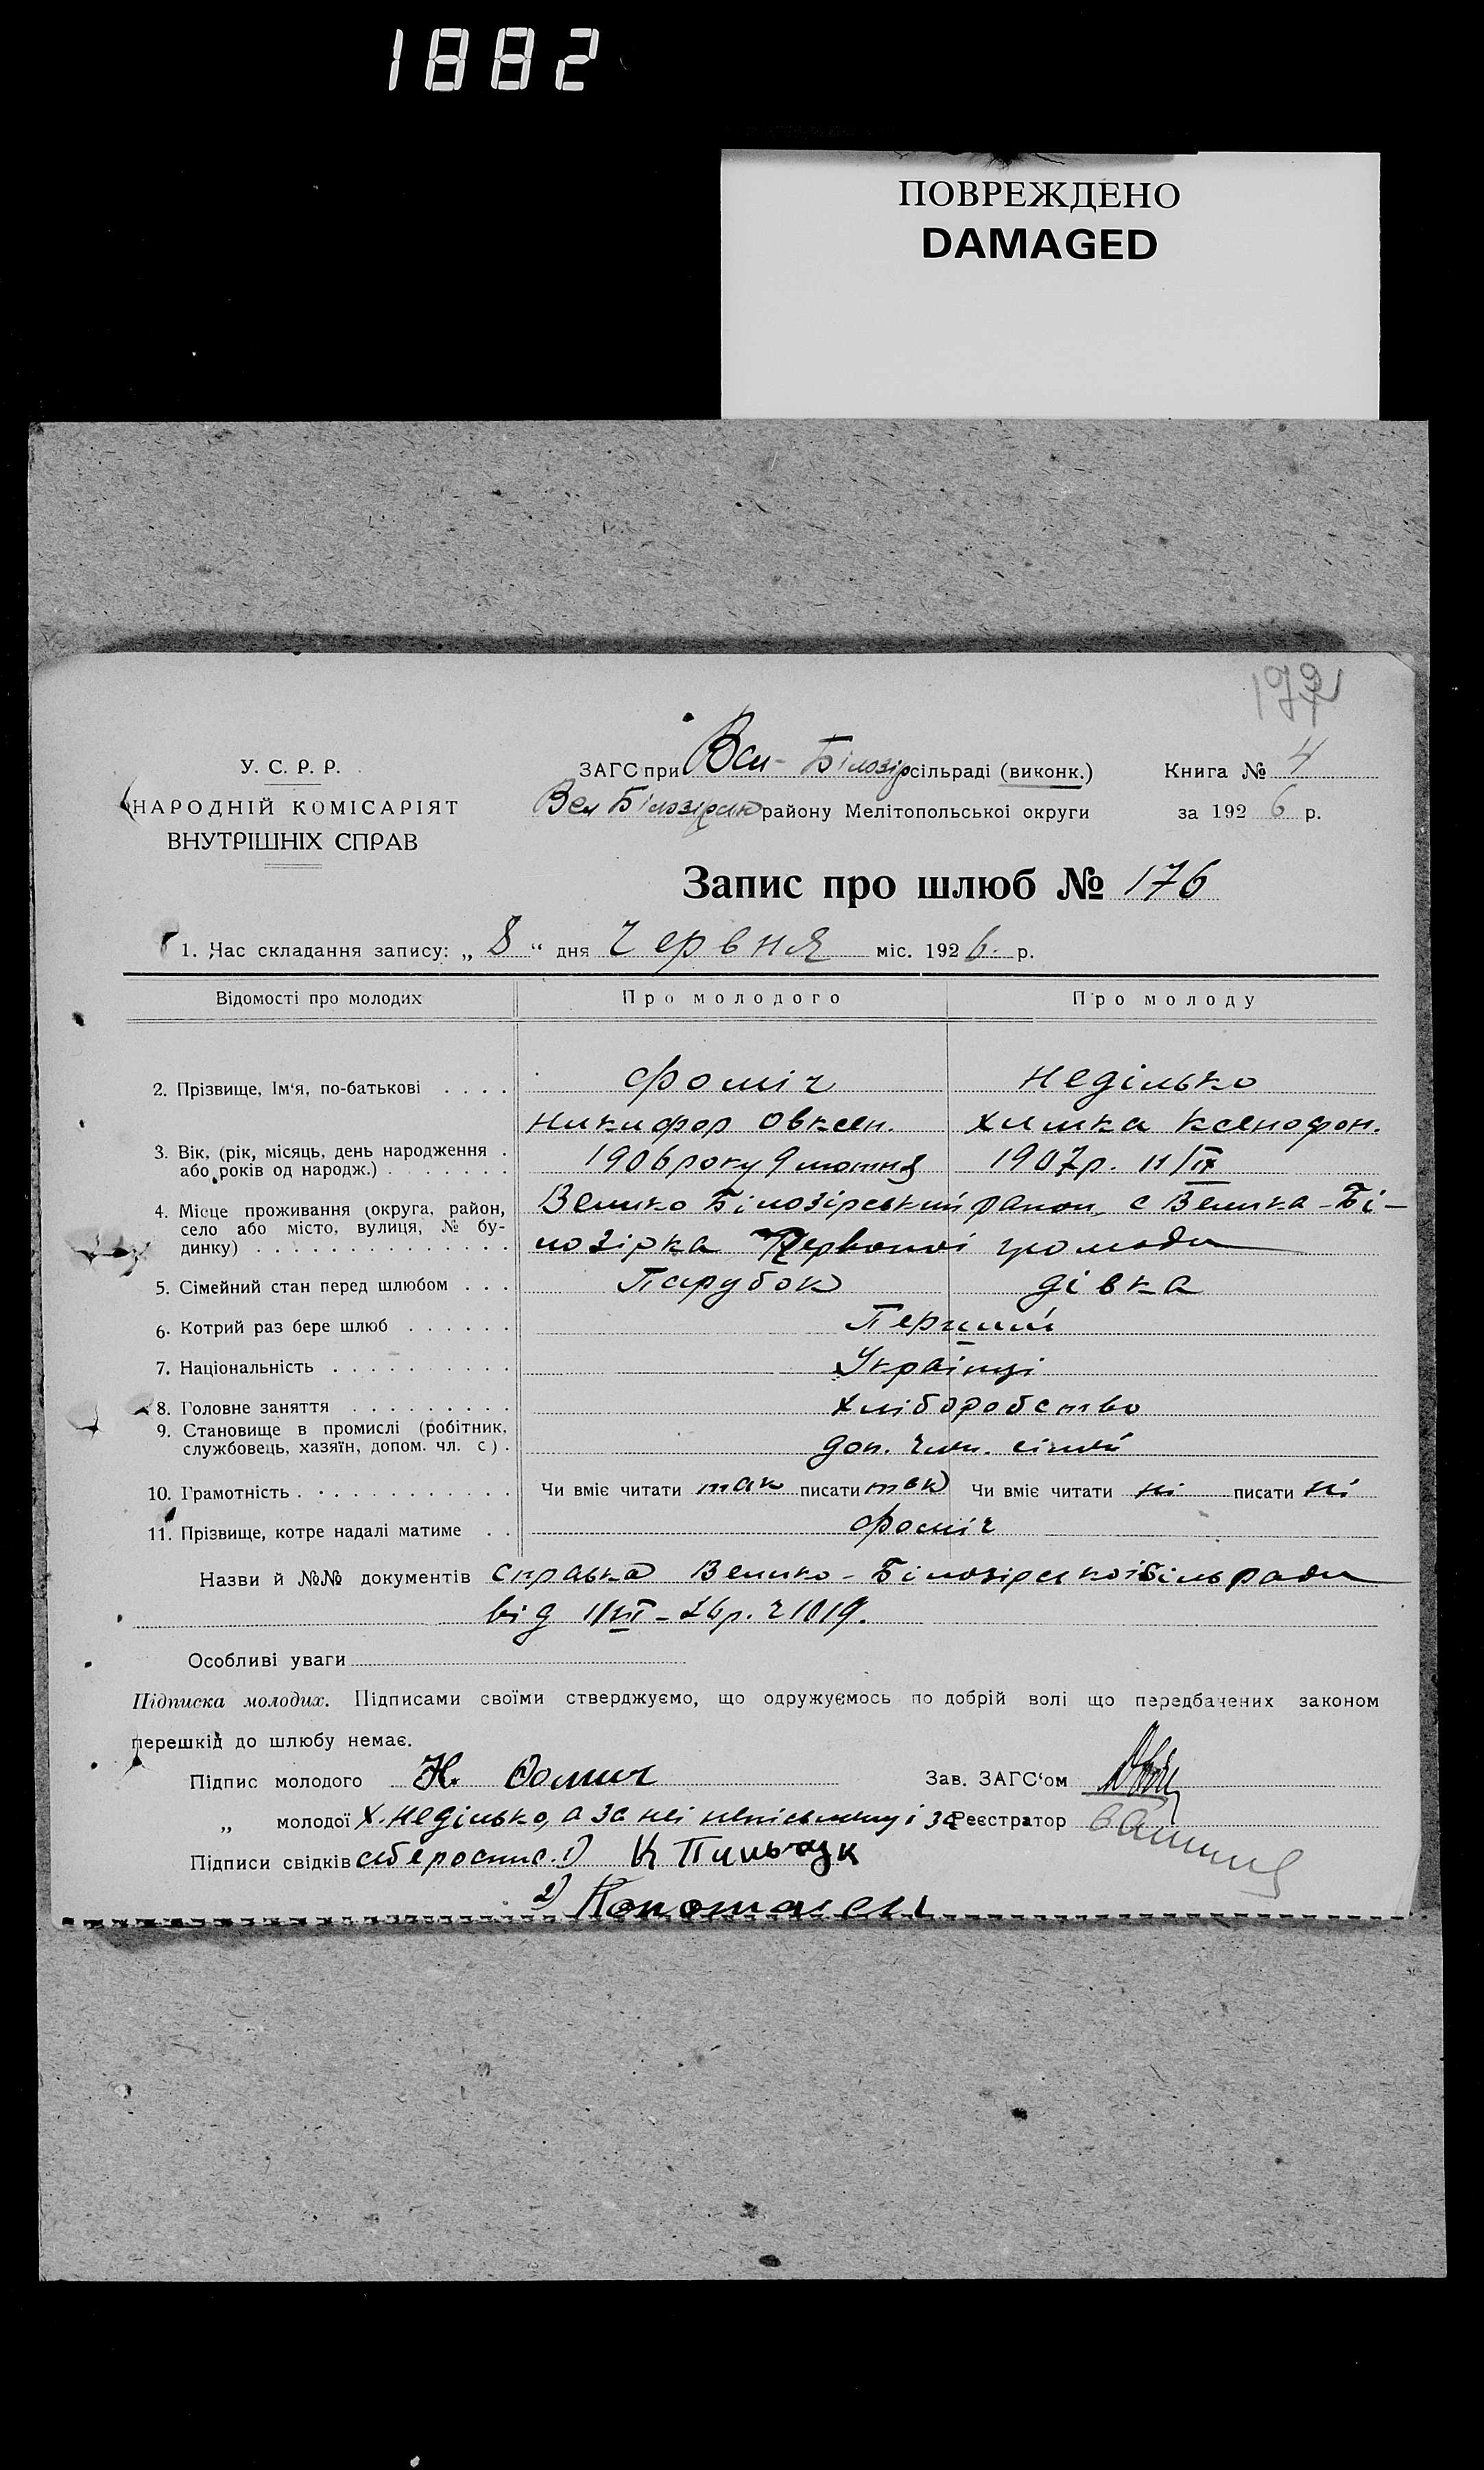 1882
ПОВРЕЖДЕНО
DAMAGED
У. С. Р. Р.
НАРОДНІЙ КОМІСАРІЯТ
ВНУТРІШНІХ СПРАВ
ЗАГС при Вел- Білозір сільраді (виконк.)
Вел Білозірськ району Мелітопольської округи
Книга № 4
за 1926 р.
Запис про шлюб № 176
1. Час складання запису: „ 8 “ дня Червня міс. 1926. р.
Відомості про молодих Про молодого Про молоду
2. Прізвище, Ім'я, по-батькові . . . . Фоміч Неділько
Никифор Овксен. Химка Ксенофон.
3. Вік, (рік, місяць, день народження . 1906 року 9 жотня 1907 р. 11/IX
або років од народж.) . . . . . . .
4. Місце проживання (округа, район, Велико Білозірський район, с Велика-Бі-
село або місто, вулиця, № бу-
динку) . . . . . . . . . . . . . . лозірка Червоної громади
5. Сімейний стан перед шлюбом . . . Парубок дівка
6. Котрий раз бере шлюб . . . . . . Перший
7. Національність . . . . . . . . . . Українці
8. Головне заняття . . . . . . . . . Хліборобство
9. Становище в промислі (робітник,
службовець, хазяїн, допом. чл. с) . доп. член. сімьї
10. Грамотність . . . . . . . . . . . . Чи вміє читати так писати так Чи вміє читати ні писати ні
11. Прізвище, котре надалі матиме . . Фоміч
Назви й №№ документів справка Велико-Білозірської Сільради
від
Особливі уваги
Підписка молодих. Підписами своїми стверджуємо, що одружуємось по добрій волі що передбачених законом
перешкід до шлюбу немає.
Підпис молодого Н. Фомич Зав. ЗАГС'ом
„ молодої Х. Неділько, а за неї неписьменну і за Реєстратор
Підписи свідків себе роспис. 1) К Пильчук
2)